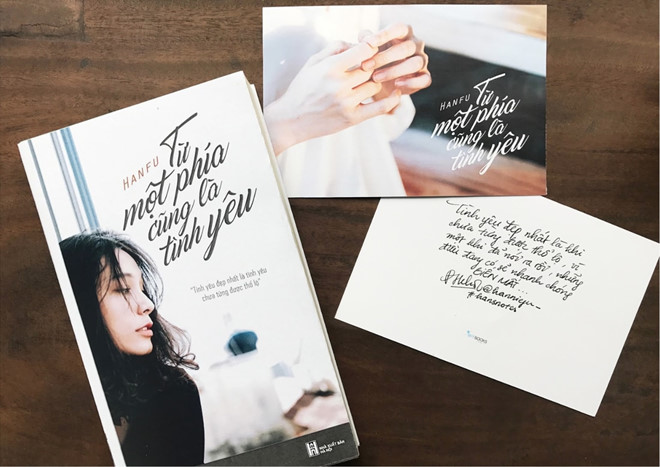 HANFU Từ
một phía
cũng là
tình yêu
"Tình yêu đẹp nhất là tình yêu
chưa từng được thổ lộ"
NHÀ XUẤT BẢN
HÀ NỘI
HANFU Từ
một phía
cũng là
tình yêu
Tình yêu đẹp nhất là khi
chưa từng được thổ lộ. Vì
một khi đã nói ra rồi, những
điều đang có sẽ nhanh chóng
BIẾN MẤT...
#hansnotes
BOOKS